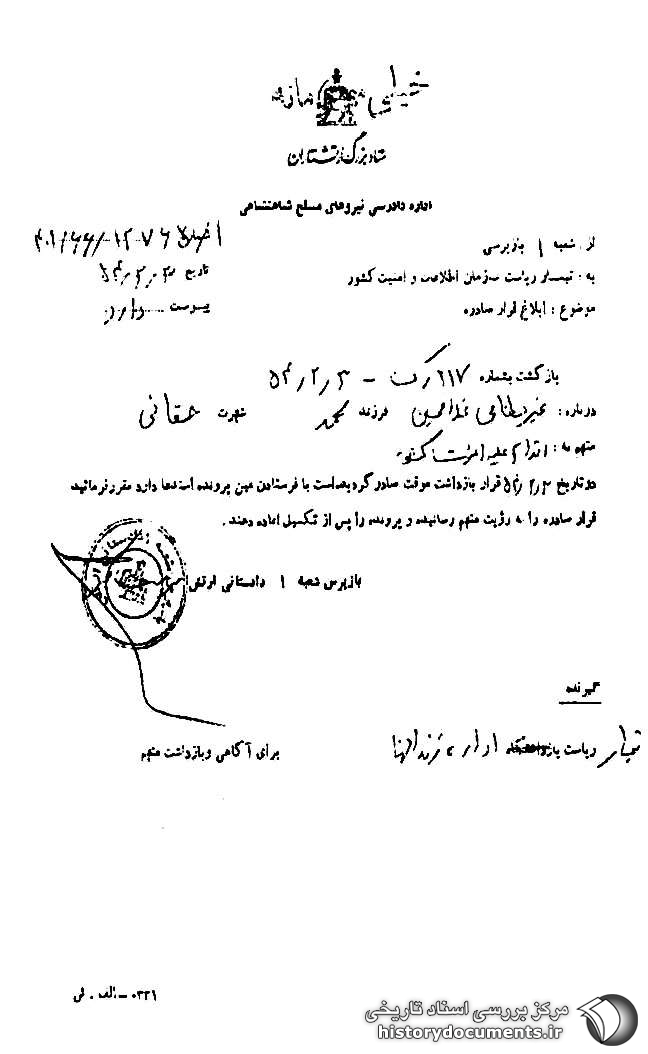 خیلی محرمانه
ستاد بزرگ ارتشتاران
اداره دادرسی نیروهای مسلح شاهنشاهی
از : شعبه ۱ بازپرسی
به : تیمسار ریاست سازمان اطلاعات و امنیت کشور
تاریخ ۵۴/۲/۳
موضوع : ابلاغ قرار صادره
پیوست دارد
بازگشت بشماره ۶۱۷ - ۵۴/۲/۳
درباره : غیرنظامی غلامحسین فرزند محمد شهرت حقانی
متهم به : اقدام علیه امنیت کشور
در تاریخ ۵۴/۲/۳ قرار بازداشت موقت صادر گردیده است با فرستادن عین پرونده استدعا دارد مقرر فرمائید
قرار صادره را به رؤیت متهم رسانیده و پرونده را پس از تکمیل اعاده دهند .
بازپرس شعبه ۱ دادستانی ارتش
گیرنده
تیمسار ریاست اداره
برای آگاهی و بازداشت متهم
۰۳۲۱ - الف . ش
مرکز بررسی اسناد تاریخی
historydocuments.ir